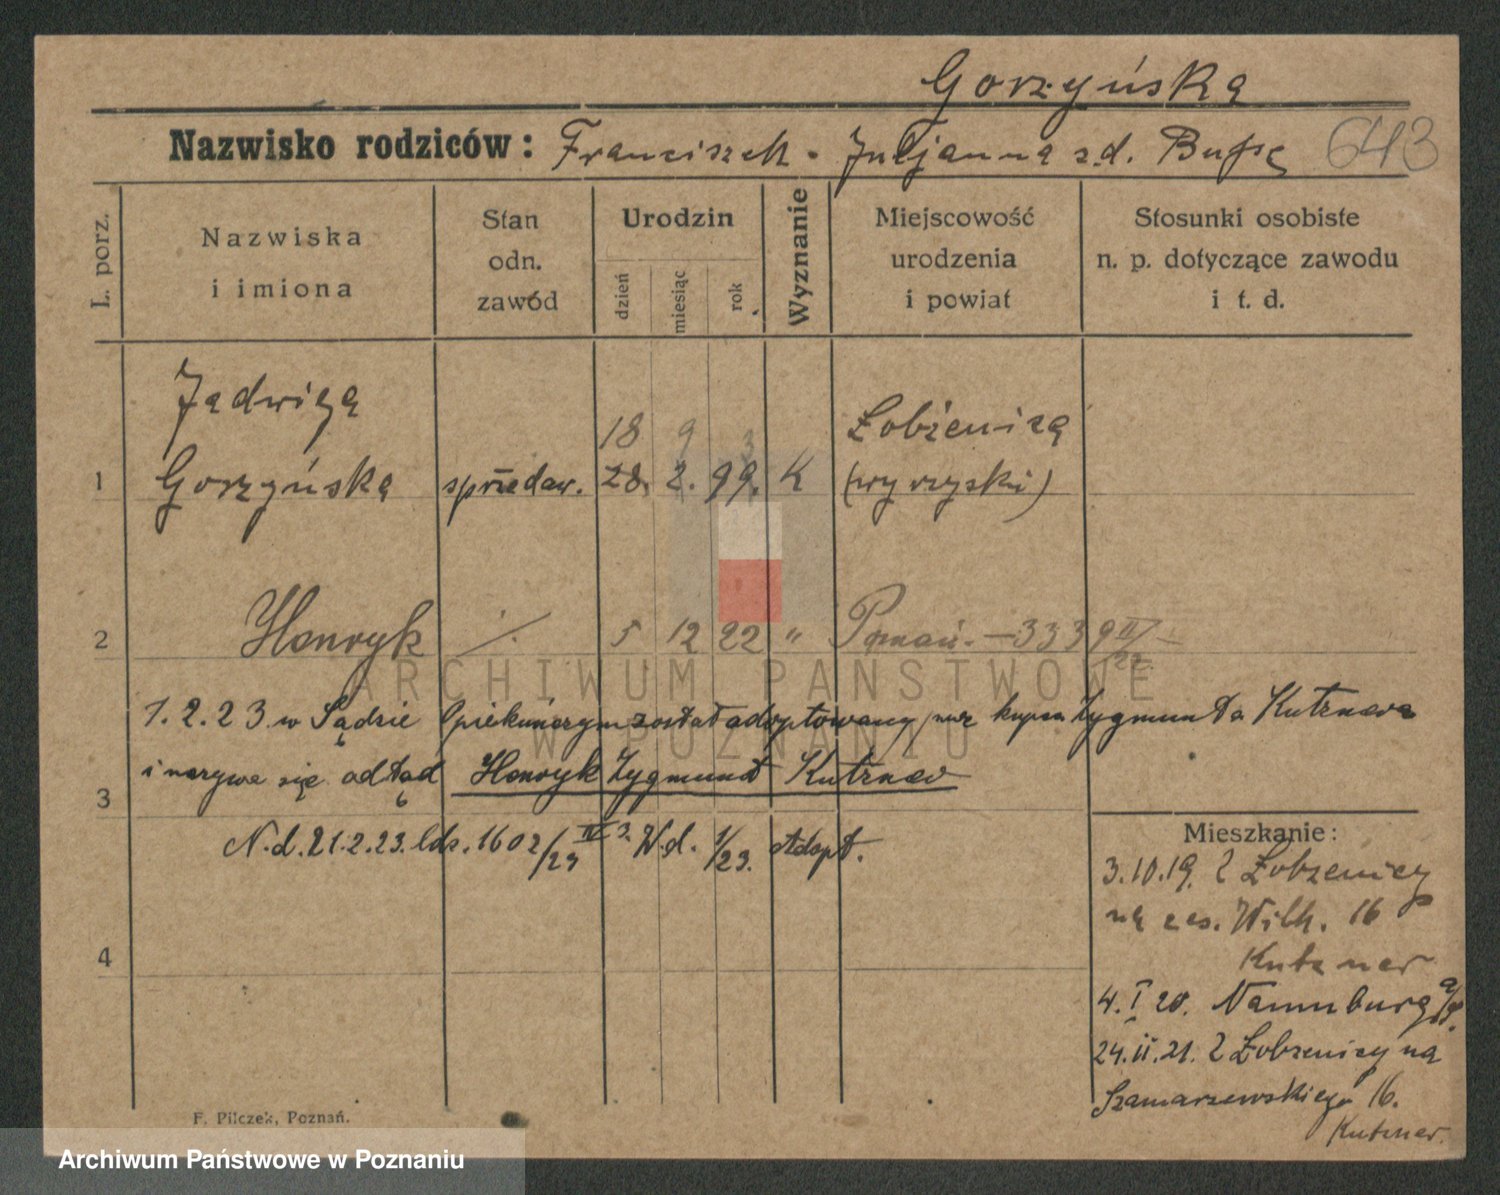 Gorzyńska
Nazwisko rodziców: Franciszek - Juljanna z d. 643
L. porz.
Nazwiska
i imiona
Stan
odn.
zawód
Urodzin
dzień
miesiąc
rok
Wyznanie
Miejscowość
urodzenia
i powiat
Stosunki osobiste
n. p. dotyczące zawodu
i t. d.
Jadwiga Łobżenica
18 9 3
1 Gorzyńska sprzedaw. 28. 2. 99. K (wyrzyski)
2 Henryk ·/. 5 12 22 " Poznań - 3339 II/22
ARCHIWUM PAŃSTWOWE
W POZNANIU
1.2.23 w Sądzie Opiekuńczym został adoptowany przez kupca Zygmunta Kutznera
i nazywa się odtąd Henryk Zygmunt Kutzner
3
N.d. 21.2.23. lds. 1602/23 IV 3. Wd. 1/23. Adopt.
4
Mieszkanie:
3.10.19. Z Łobżenicy
na ces. Wilh. 16
Kutzner
4. I 20. Naumburg a/S.
24.II.21. Z Łobżenicy na
Szamarzewskiego 16.
Kutzner.
F. Pilczek, Poznań.
Archiwum Państwowe w Poznaniu